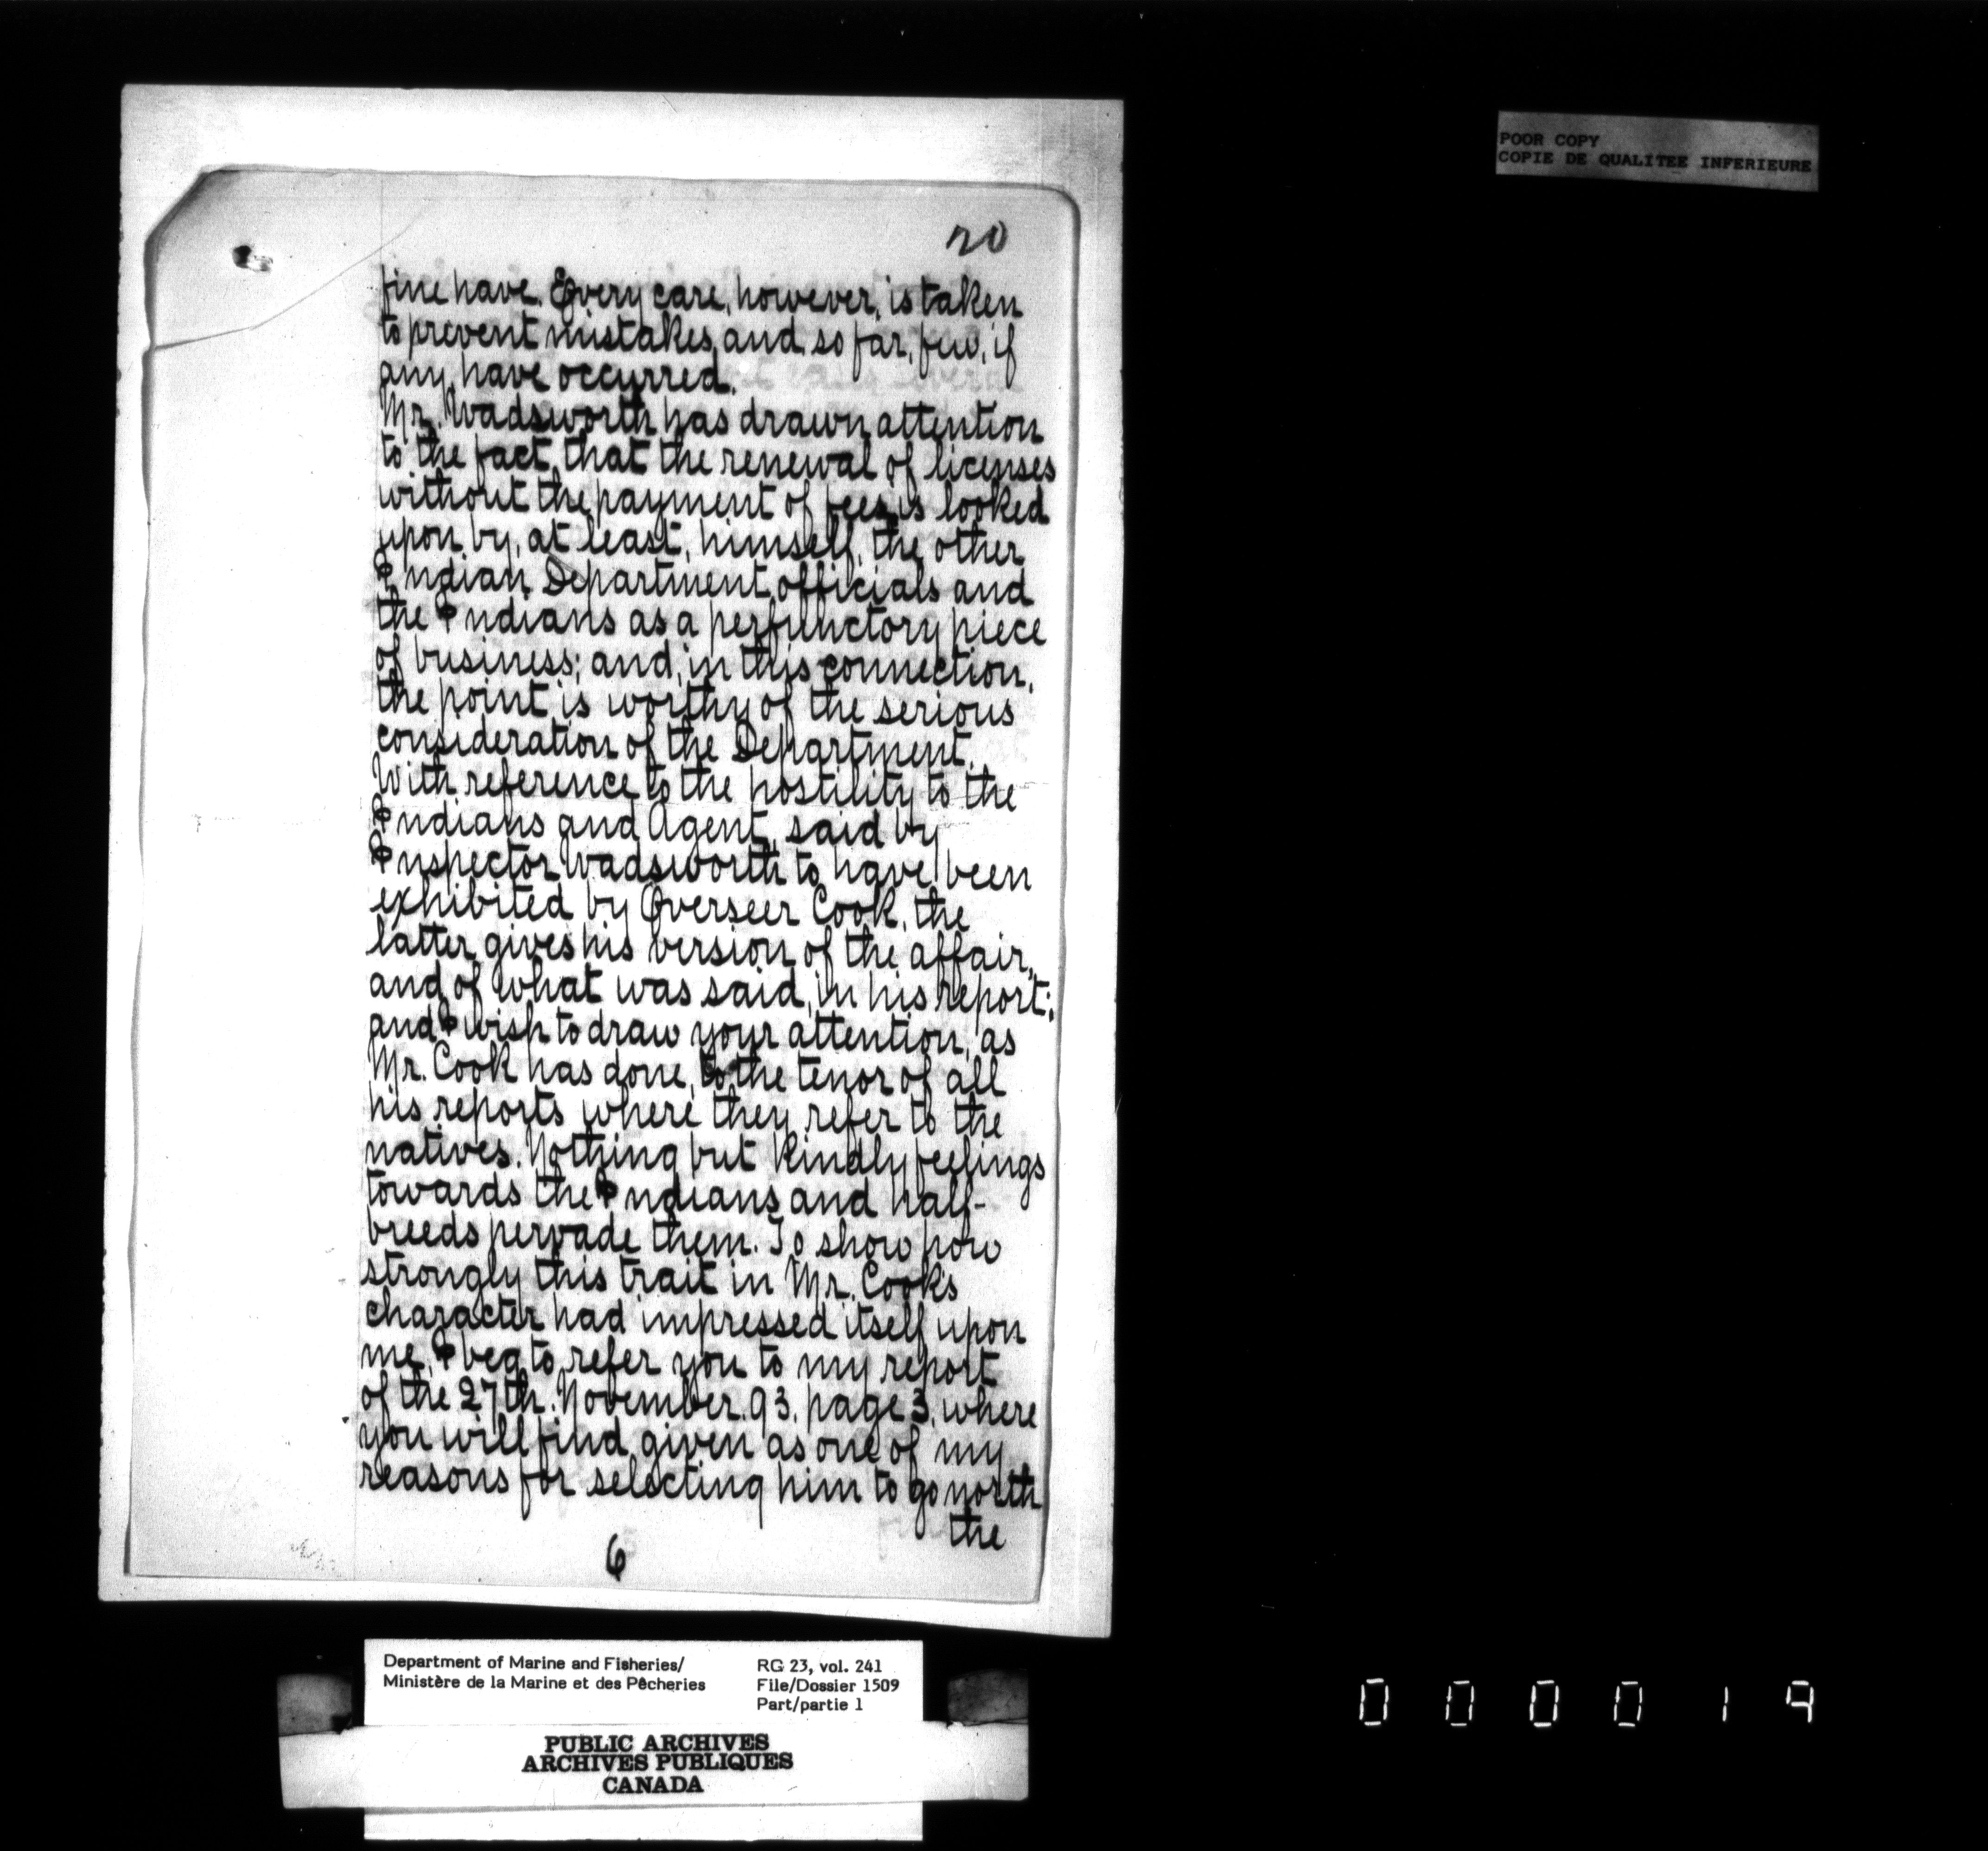 POOR COPY
COPIE DE QUALITEE INFERIEURE
20
fine have. Every care, however, is taken
to prevent mistakes, and so far, few, if
any, have occurred.
Mr. Wadsworth has drawn attention
to the fact that the renewal of licenses
without the payment of fees is looked
upon by, at least, himself, the other
Indian Department officials and
the Indians as a perfunctory piece
of business; and, in this connection,
the point is worthy of the serious
consideration of the Department.
With reference to the hostility to the
Indians and Agent, said by
Inspector Wadsworth to have been
exhibited by Overseer Cook, the
latter gives his version of the affair,
and of what was said, in his report;
and I wish to draw your attention, as
Mr. Cook has done, to the tenor of all
his reports where they refer to the
natives. Nothing but kindly feelings
towards the Indians and half-
breeds pervade them. To show how
strongly this trait in Mr. Cook's
character had impressed itself upon
me, I beg to refer you to my report
of the 27th. November. 93. page 3, where
you will find given as one of my
reasons for selecting him to go north
the
6
Department of Marine and Fisheries/
Ministère de la Marine et des Pêcheries
RG 23, vol. 241
File/Dossier 1509
Part/partie 1
PUBLIC ARCHIVES
ARCHIVES PUBLIQUES
CANADA
000019